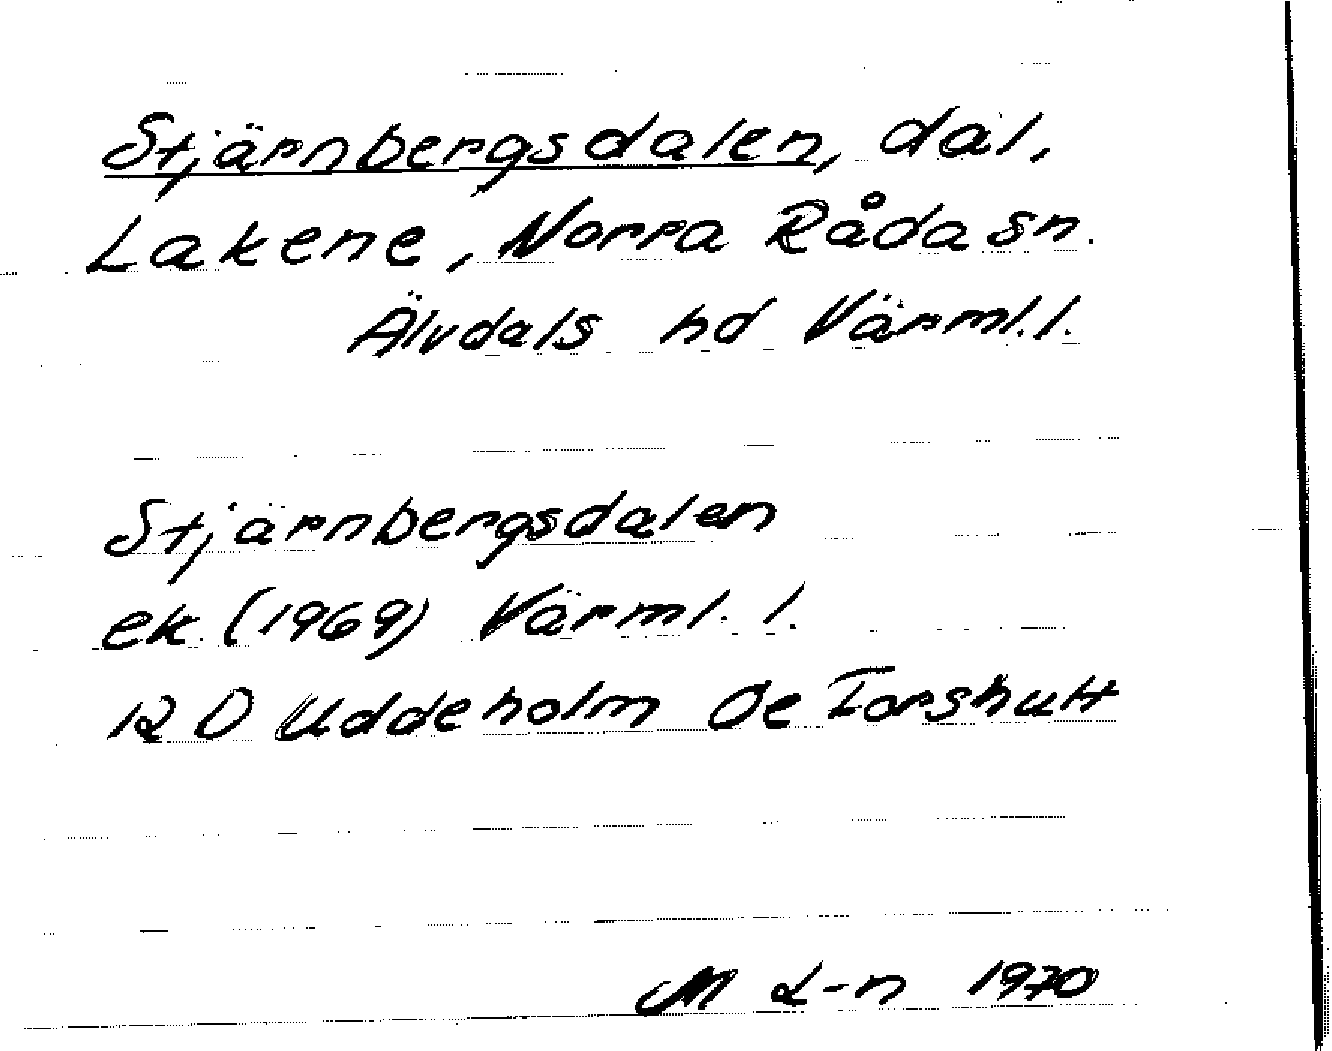 Stjärnbergsdalen, dal,
Lakene, Norra Råda sn.
Älvdals hd Värml. l.
Stjärnbergsdalen
ek (1969) Värml. l.
12 D Uddeholm Oe Torshutt
M L-n 1970